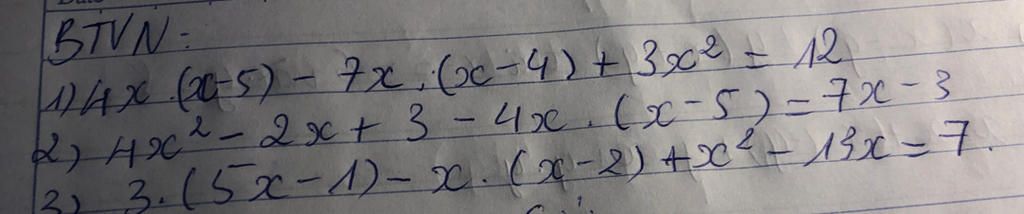 BTVN:
1) 4x.(x-5) - 7x.(x-4) + 3x² = 12
2) 4x² - 2x + 3 - 4x.(x-5) = 7x - 3
3) 3.(5x-1) - x.(x-2) + x² - 13x = 7.